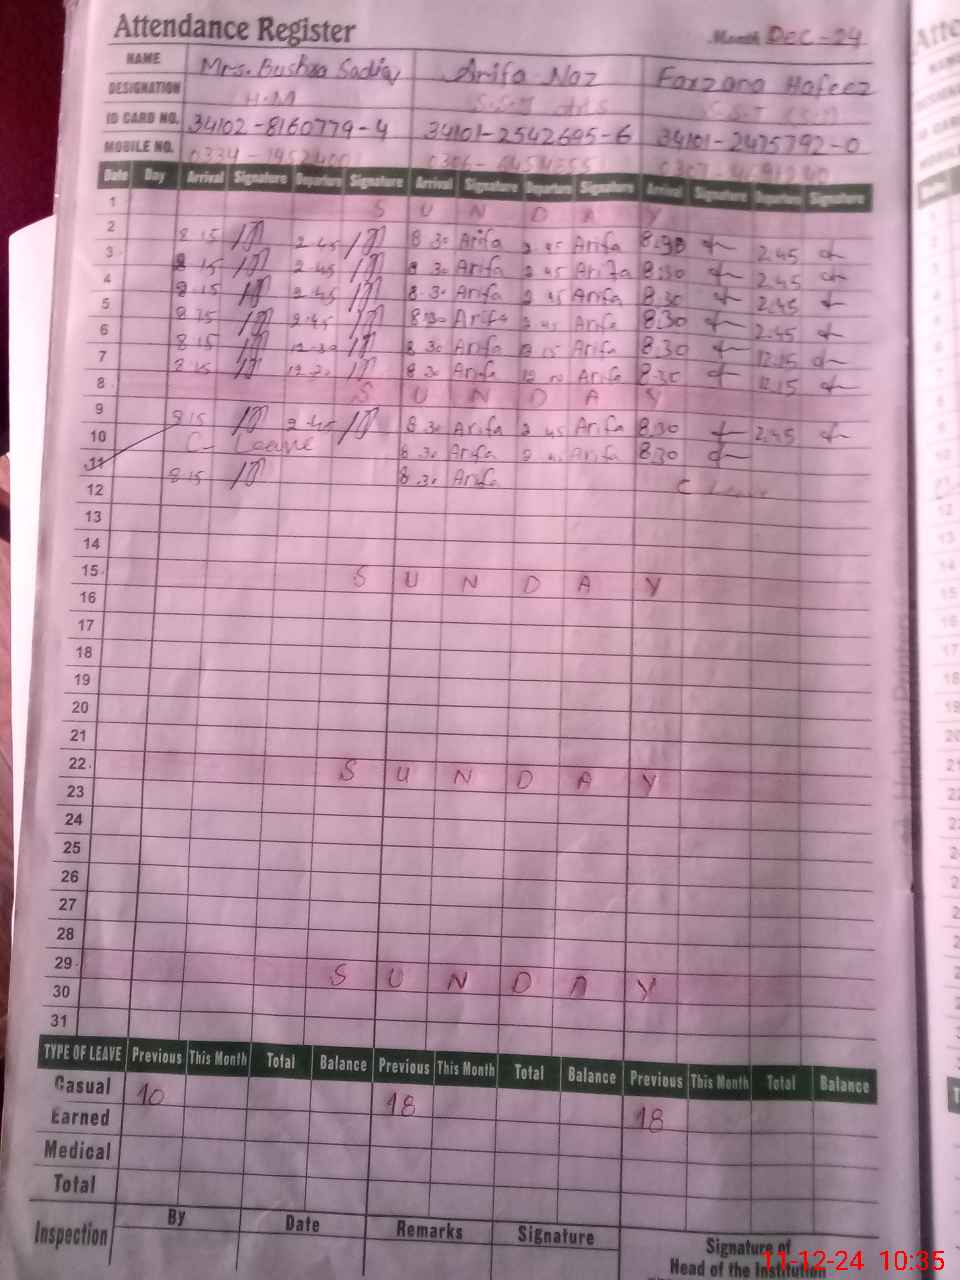 Attendance Register
Month Dec-24
NAME Mrs. Bushra Sadia Arifa Naz Farzana Hafeez
DESIGNATION H.M
ID CARD NO. 34102-8160779-4 34101-2542695-6 34101-2475792-0
MOBILE NO.
Date Day Arrival Signature Departure Signature Arrival Signature Departure Signature Arrival Signature Departure Signature
1 S U N D A Y
2 8.15 2.45 8.30 Arifa 2.45 Arifa 8.30 2.45
3 8.15 2.45 8.30 Arifa 2.45 Arifa 8.30 2.45
4 8.15 2.45 8.30 Arifa 2.45 Arifa 8.30 2.45
5 8.15 2.45 8.30 Arifa 2.45 Arifa 8.30 2.45
6 8.15 12.30 8.30 Arifa Arifa 8.30 12.15
7 8.15 12.30 8.30 Arifa Arifa 8.30 12.15
8 S U N D A Y
9 8.15 2.45 8.30 Arifa 2.45 Arifa 8.30 2.45
10 C- Leave 8.30 Arifa 2.45 Arifa 8.30
11 8.15 8.30 Arifa C Leave
12
13
14
15 S U N D A Y
16
17
18
19
20
21
22 S U N D A Y
23
24
25
26
27
28
29 S U N D A Y
30
31
TYPE OF LEAVE Previous This Month Total Balance Previous This Month Total Balance Previous This Month Total Balance
Casual 10 18 18
Earned
Medical
Total
Inspection By Date Remarks Signature Signature of
Head of the Institution
11-12-24 10:35